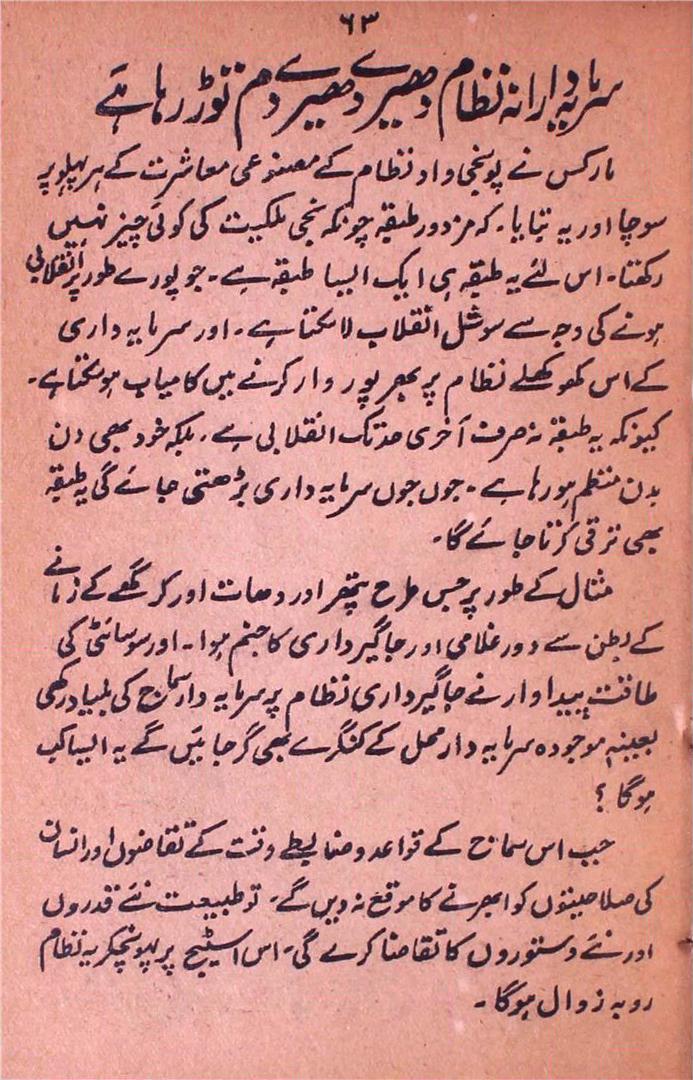 ۶۳
سرمایہ دارانہ نظام دھیرے دھیرے دم توڑ رہا ہے
مارکس نے پونجی واد نظام کے مصنوعی معاشرت کے ہر پہلو پر
سوچا اور یہ بتایا۔ کہ مزدور طبقہ چونکہ نجی ملکیت کی کوئی چیز نہیں
رکھتا۔ اس لئے یہ طبقہ ہی ایک ایسا طبقہ ہے۔ جو پورے طور پر انقلابی
ہونے کی وجہ سے سوشل انقلاب لا سکتا ہے۔ اور سرمایہ داری
کے اس کھوکھلے نظام پر بھرپور وار کرنے میں کامیاب ہو سکتا ہے۔
کیونکہ یہ طبقہ نہ صرف آخری حد تک انقلابی ہے۔ بلکہ خود بھی دن
بدن منظم ہو رہا ہے۔ جوں جوں سرمایہ داری بڑھتی جائے گی یہ طبقہ
بھی ترقی کرتا جائے گا۔
مثال کے طور پر جس طرح پتھر اور دھات اور کرگھے کے زمانے
کے بطن سے دور غلامی اور جاگیرداری کا جنم ہوا۔ اور سوسائٹی کی
طاقت پیداوار نے جاگیرداری نظام پر سرمایہ دار سماج کی بنیاد رکھی
بعینہٖ موجودہ سرمایہ دار محل کے کنگرے بھی گر جائیں گے یہ ایسا کب
ہوگا ؟
جب اس سماج کے قواعد و ضابطے وقت کے تقاضوں اور انسان
کی صلاحیتوں کو ابھرنے کا موقع نہ دیں گے۔ تو طبیعت نئے قدروں
اور نئے دستوروں کا تقاضا کرے گی۔ اس اسٹیج پر پہونچکر یہ نظام
رو بہ زوال ہوگا۔